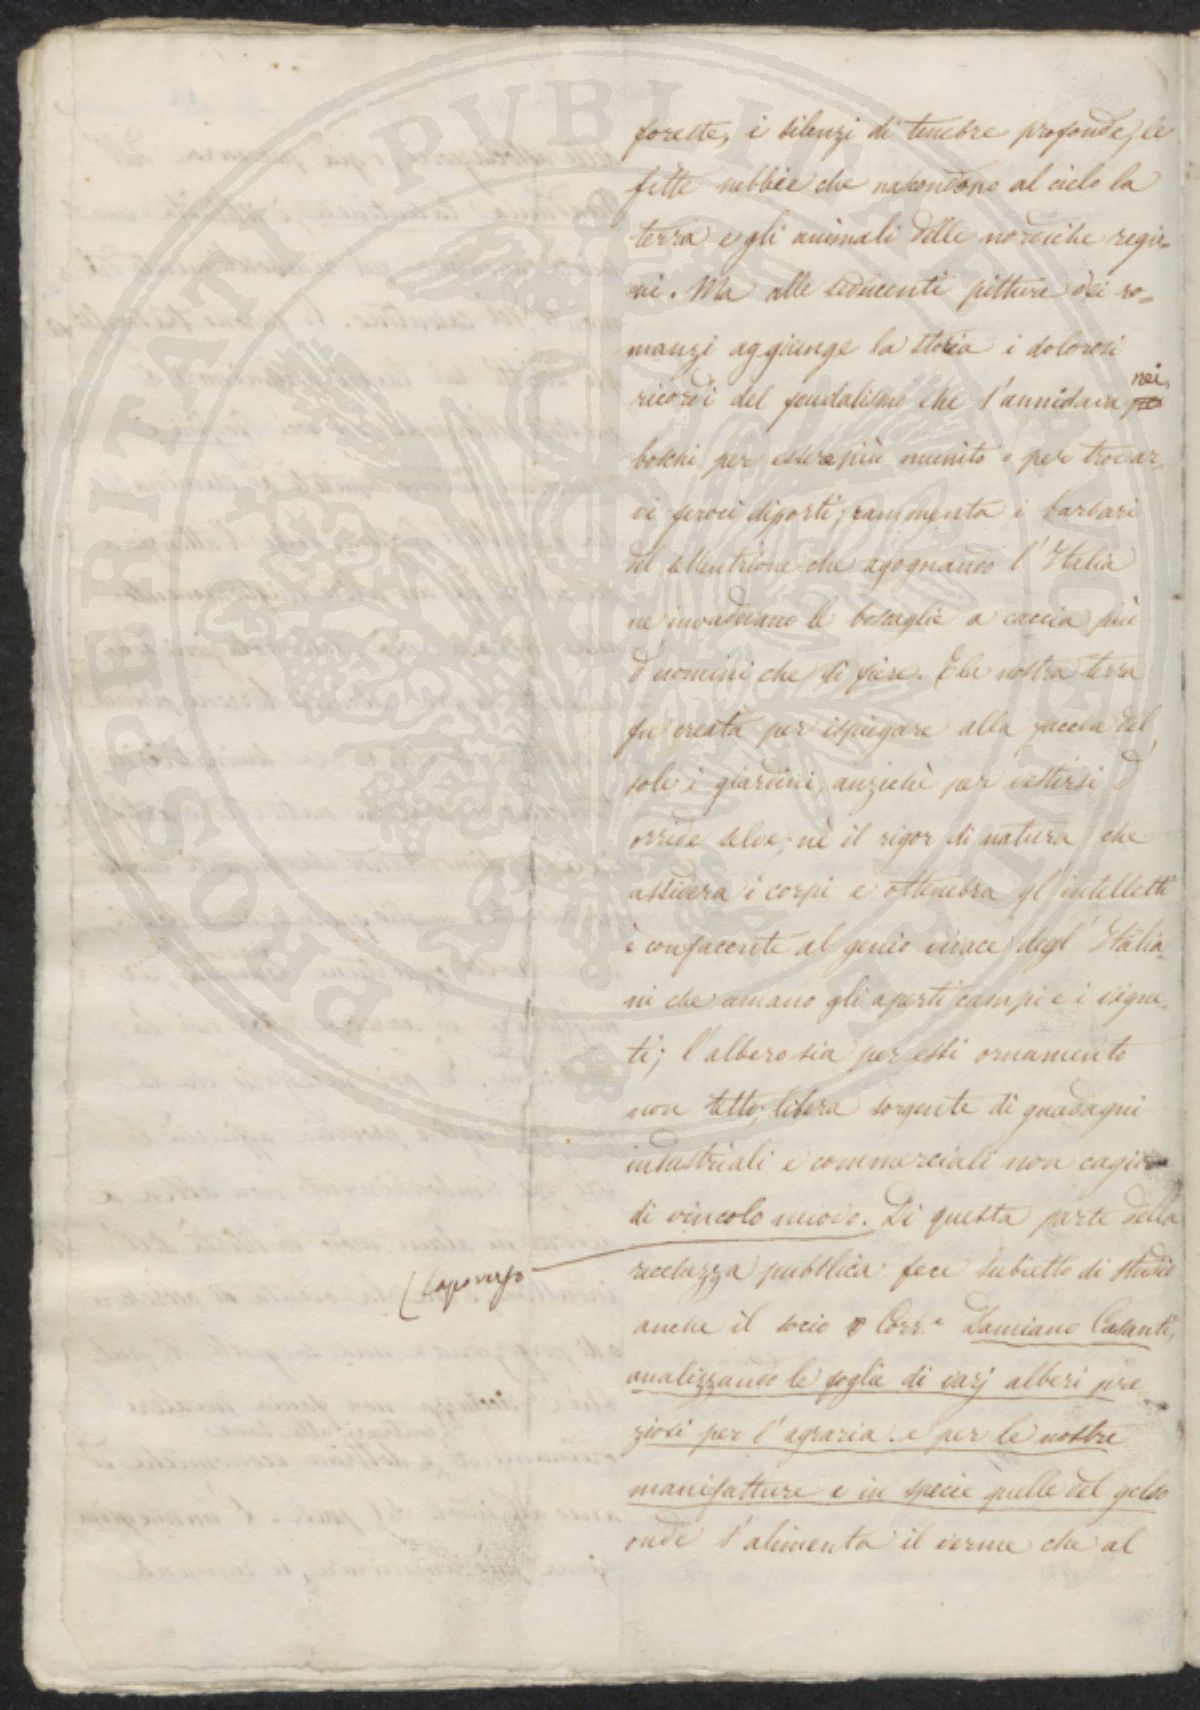 foreste, i silenzi di tenebre profonde, le
fitte nebbie che nascondono al cielo la
terra e gli animali delle nordiche regio-
ni. Ma alle seducenti pitture dei ro-
manzi aggiunge la storia i dolorosi
ricordi del feudalismo che s'annidava nei
boschi per essere più munito e per trovar-
vi feroci diporti; rammenta i barbari
del settentrione che agognando l'Italia
ne invadevano le boscaglie a caccia più
d'uomini che di fiere. E la nostra terra
fu creata per ispiegare alla faccia del
sole i giardini, anzichè per vestirsi d'
orride selve; nè il rigor di natura che
assidera i corpi e ottenebra gl'intelletti
è confacente al genio vivace degl'Italia-
ni che amano gli aperti campi e i vigne-
ti; l'albero sia per essi ornamento
non tetto; libera sorgente di guadagni
industriali e commerciali non cagion
di vincolo nuovo. Di questa parte della
Capoverso
ricchezza pubblica fece subietto di studio
anche il socio Corr.e Damiano Casanti,
analizzando le foglie di varj alberi pre-
ziosi per l'agraria e per le nostre
manifatture e in specie quelle del gelso
onde s'alimenta il verme che al
PROSPERITATI PUBLICAE AUGENDAE